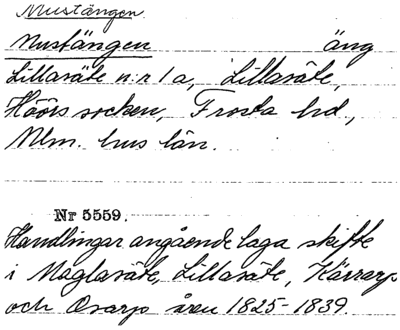 Mustängen
Mustängen äng
Lillaräte n:r 1 a, Lillaräte,
Höörs socken, Frosta hd,
Mlm. hus län.
Nr 5559.
Handlingar angående laga skifte
i Maglaräte, Lillaräte, Kärrarp
och Orarp åren 1825-1839.